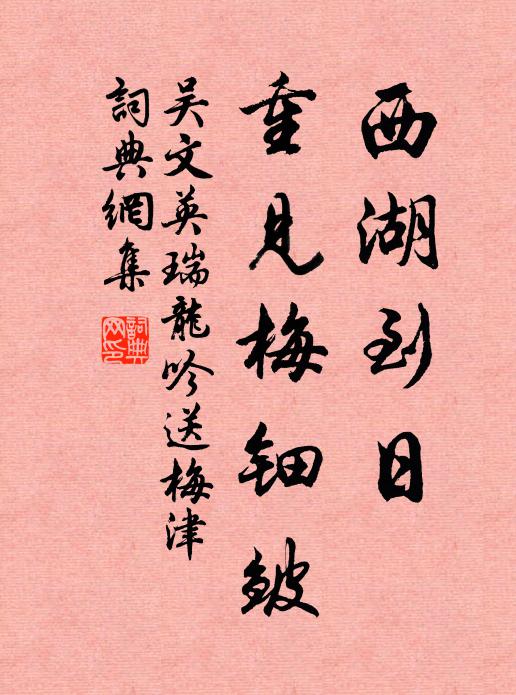 西湖到日
重見梅鈿皺
吳文英瑞龍吟送梅津
詞典網集
詞典網印